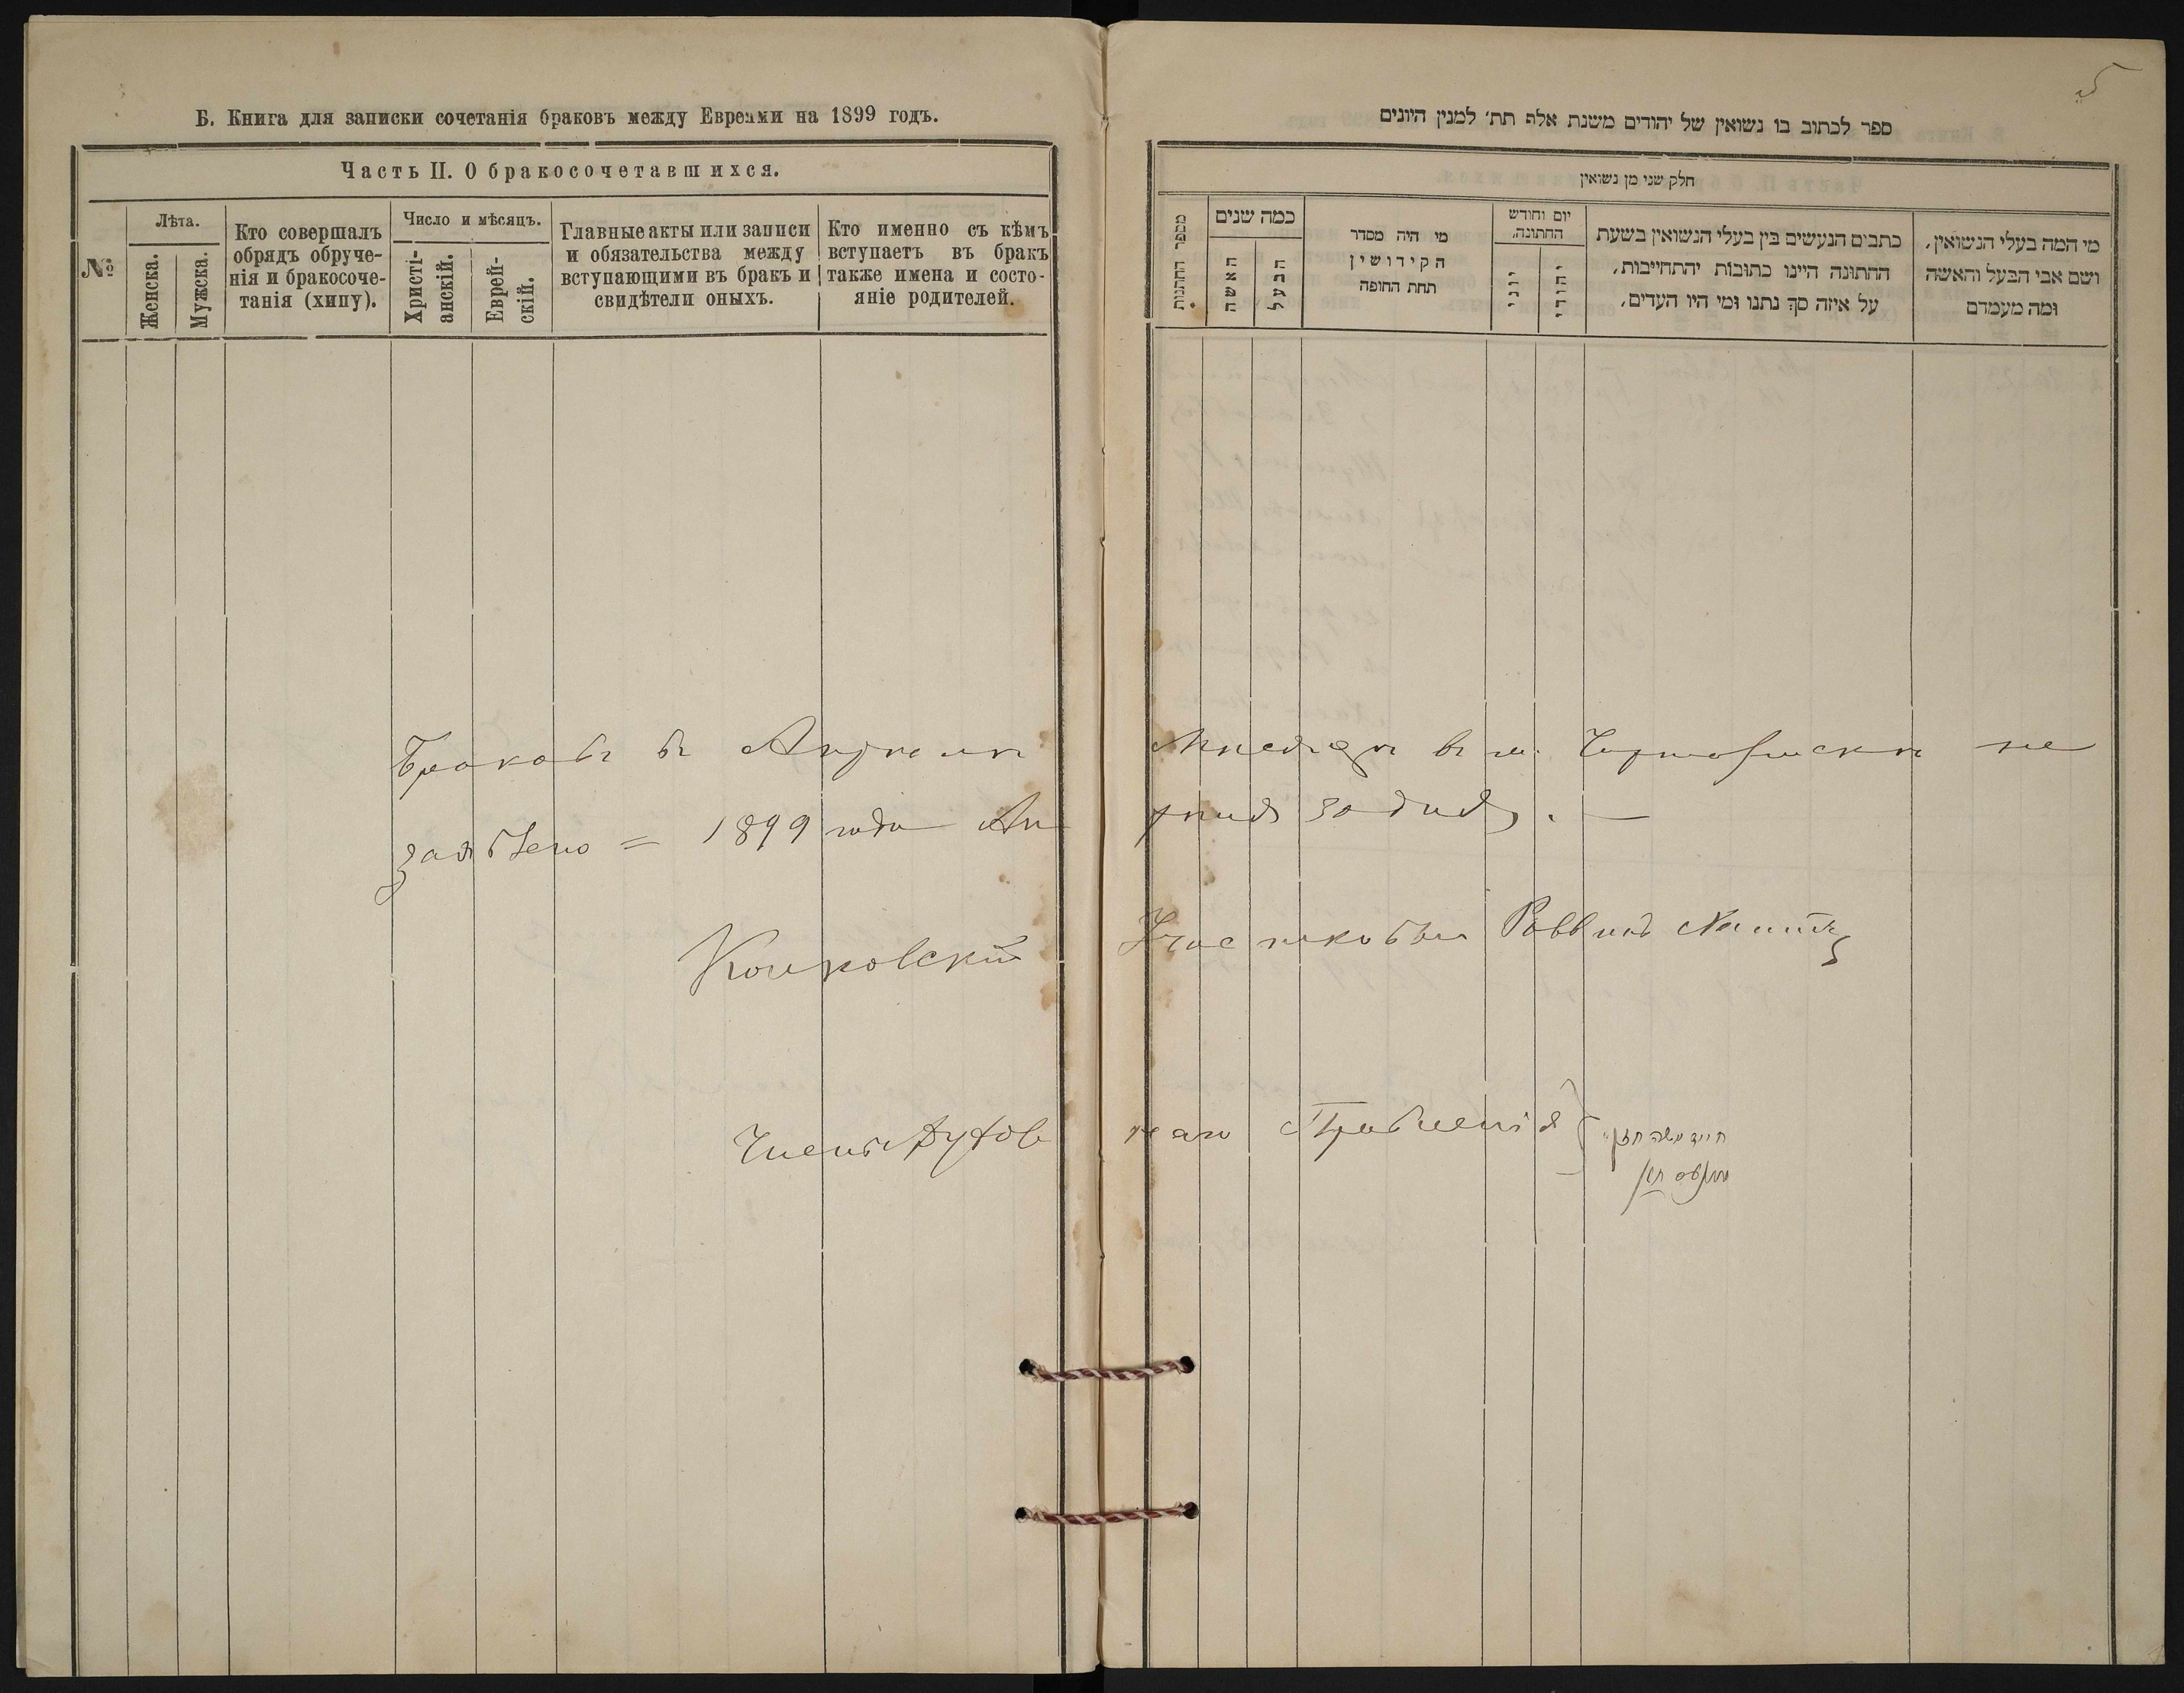 Б. Книга для записки сочетанія браковъ между Евреями на 1899 годъ.
Часть II. О бракосочетавшихся.
№
Лѣта.
Женска.
Мужска.
Кто совершалъ
обрядъ обруче-
нія и бракосоче-
танія (хипу).
Число и мѣсяцъ.
Христі-
анскій.
Еврей-
скій.
Главные акты или записи
и обязательства между
вступающими въ бракъ и
свидѣтели оныхъ.
Кто именно съ кѣмъ
вступаетъ въ бракъ
также имена и состо-
яніе родителей.
5
ספר לכתוב בו נשואין של יהודים משנת אלף תת׳ למנין היונים
חלק שני מן נשואין
מספר החתנות
כמה שנים
האשה
הבעל
מי היה מסדר
הקידושין
תחת החופה
יום וחודש
החתונה.
יוני
יהודי
כתבים הנעשים בין בעלי הנשואין בשעת
החתונה היינו כתובות יהתחייבות,
על איזה סך נתנו ומי היו העדים,
מי המה בעלי הנשואין,
ושם אבי הבעל והאשה
ומה מעמדם
Браковъ въ Апрѣлѣ Мѣсяцѣ въ м. не
заявлено = 1899 года Апрѣля 30 дня. —
Раввинъ
Члены Духовнаго Правленія